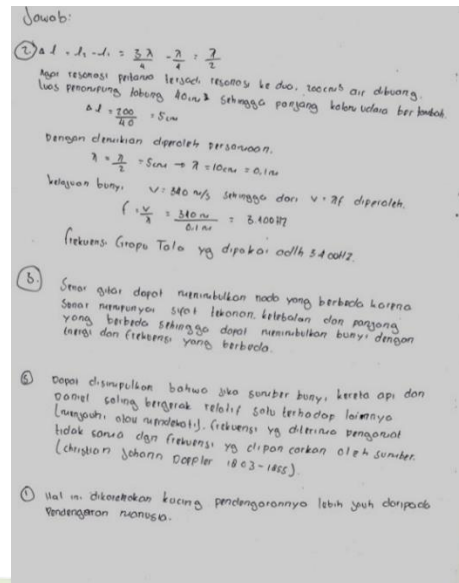 Jawab:
② Δl = l₂ - l₁ = 3λ/4 - λ/4 = λ/2
Agar resonasi pertama terjadi resonasi ke dua, 200cm³ air dibuang.
luas penampung tabung 40cm² sehingga panjang kolom udara bertambah.
Δl = 200/40 = 5cm
Dengan demikian diperoleh persamaan.
λ = λ/2 = 5cm → λ = 10cm = 0,1m
kelajuan bunyi V = 340 m/s sehingga dari v = λf diperoleh.
f = v/λ = 340 m/0,1 m = 3.400Hz
frekuensi Garpu Tala yg dipakai adlh 3400Hz.
③. Senar gitar dapat menimbulkan nada yang berbeda karena
Senar mempunyai sifat tekanan, ketebalan dan panjang
yang berbeda sehingga dapat menimbulkan bunyi dengan
Energi dan frekuensi yang berbeda.
⑤ Dapat disimpulkan bahwa jika sumber bunyi, kereta api dan
Daniel saling bergerak relatif satu terhadap lainnya
(menjauhi atau mendekati). frekuensi yg diterima pengamat
tidak sama dgn frekuensi yg dipancarkan oleh sumber.
(christian Johann Doppler 1803-1855).
① Hal ini dikarenakan kucing pendengarannya lebih jauh daripada
Pendengaran manusia.